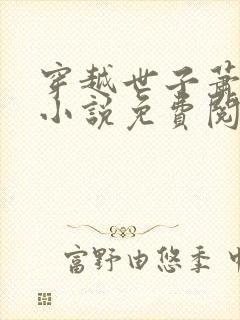 穿越世子萧
小說免費閱
富野由悠季